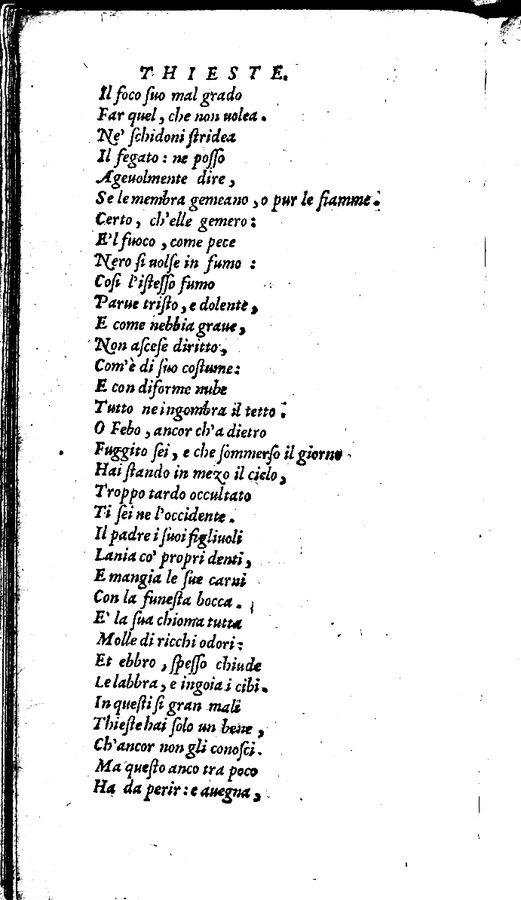 THIESTE.
Il foco ſuo mal grado
Far quel, che non uolea.
Ne' ſchidoni ſtridea
Il fegato: ne poſſo
Ageuolmente dire,
Se le membra gemeano, o pur le fiamme.
Certo, ch'elle gemero:
E'l fuoco, come pece
Nero ſi uolſe in fumo:
Coſi l'iſteſſo fumo
Parue triſto, e dolente,
E come nebbia graue,
Non aſceſe diritto,
Com'è di ſuo coſtume:
E con diforme nube
Tutto ne ingombra il tetto.
O Febo, ancor ch'a dietro
Fuggito ſei, e che ſommerſo il giorno
Hai ſtando in mezo il cielo,
Troppo tardo occultato
Ti ſei ne l'occidente.
Il padre i ſuoi figliuoli
Lania co' propri denti,
E mangia le ſue carni
Con la funeſta bocca.
E' la ſua chioma tutta
Molle di ricchi odori:
Et ebbro, ſpeſſo chiude
Le labbra, e ingoia i cibi.
In queſti ſi gran mali
Thieſte hai ſolo un bene,
Ch'ancor non gli conoſci.
Ma queſto anco tra poco
Ha da perir: e auegna,